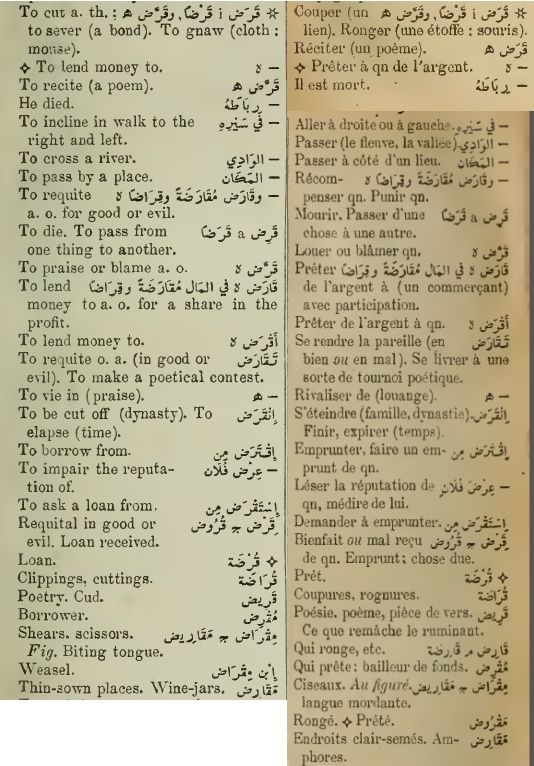 To cut a. th.; قَرَض i قَرْضًا, وقَرَّض ه *
to sever (a bond). To gnaw (cloth :
mouse).
✧ To lend money to. — ه
To recite (a poem). قَرَض ه
He died. — رِبَاطَهُ
To incline in walk to the — في سَيْرِهِ
right and left.
To cross a river. — الوَادِي
To pass by a place. — المَكَان
To requite — وقَارَض مُقَارَضَةً وقِرَاضًا ه
a. o. for good or evil.
To die. To pass from قَرِض a قَرَضًا
one thing to another.
To praise or blame a. o. قَرَّض ه
To lend قَارَض ه في المَال مُقَارَضَةً وقِرَاضًا
money to a. o. for a share in the
profit.
To lend money to. أَقْرَض ه
To requite o. a. (in good or تَقَارَض
evil). To make a poetical contest.
To vie in (praise). — ه
To be cut off (dynasty). To إِنْقَرَض
elapse (time).
To borrow from. إِقْتَرَض مِن
To impair the reputa- — عِرْض فُلَان
tion of.
To ask a loan from. إِسْتَقْرَض مِن
Requital in good or قَرْض ج قُرُوض
evil. Loan received.
Loan. قُرْضَة ✧
Clippings, cuttings. قُرَاضَة
Poetry. Cud. قَرِيض
Borrower. مُقْرِض
Shears. scissors. مِقْرَاض ج مَقَارِيض
Fig. Biting tongue.
Weasel. إِبْن مِقْرَاض
Thin-sown places. Wine-jars. مَقَارِض
Couper (un قَرَض i قَرْضًا, وقَرَّض ه *
lien). Ronger (une étoffe : souris).
Réciter (un poème). قَرَض ه
✧ Prêter à qn de l'argent. — ه
Il est mort. — رِبَاطَهُ
Aller à droite ou à gauche. — في سَيْرِهِ
Passer (le fleuve, la vallée). — الوَادِي
Passer à côté d'un lieu. — المَكَان
Récom- — وقَارَض مُقَارَضَةً وقِرَاضًا ه
penser qn. Punir qn.
Mourir. Passer d'une قَرِض a قَرَضًا
chose à une autre.
Louer ou blâmer qn. قَرَّض ه
Prêter قَارَض ه في المَال مُقَارَضَةً وقِرَاضًا
de l'argent à (un commerçant)
avec participation.
Prêter de l'argent à qn. أَقْرَض ه
Se rendre la pareille (en تَقَارَض
bien ou en mal). Se livrer à une
sorte de tournoi poétique.
Rivaliser de (louange). — ه
S'éteindre (famille, dynastie). إِنْقَرَض
Finir, expirer (temps).
Emprunter, faire un em- إِقْتَرَض مِن
prunt de qn.
Léser la réputation de — عِرْضَ فُلَانٍ
qn, médire de lui.
Demander à emprunter. إِسْتَقْرَض مِن
Bienfait ou mal reçu قَرْض ج قُرُوض
de qn. Emprunt; chose due.
Prêt. قُرْضَة ✧
Coupures, rognures. قُرَاضَة
Poésie. poème, pièce de vers. قَرِيض
Ce que remâche le ruminant.
Qui ronge, etc. قَارِض م قَارِضَة
Qui prête: bailleur de fonds. مُقْرِض
Ciseaux. Au figuré. مِقْرَاض ج مَقَارِيض
langue mordante.
Rongé. ✧ Prêté. مَقْرُوض
Endroits clair-semés. Am- مَقَارِض
phores.